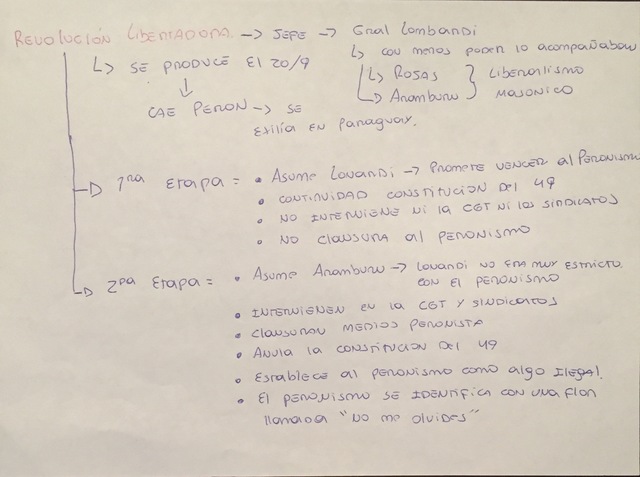 REVOLUCIÓN LIBERTADORA → JEFE → Gral Lombardi
↳ con menos poder lo acompañaban
↳ SE PRODUCE El 20/9
↳ ROSAS } LIBERALISMO
→ Aramburu } MASONICO
↓
CAE PERON → SE
EXILÍA EN Paraguay.
→ 1ra ETAPA = • Asume Lonardi → Promete VENCER al PERONISMO
• CONTINUIDAD CONSTITUCION DEL 49
• NO INTERVIENE NI la CGT NI los SINDICATOS
• NO CLAUSURA al PERONISMO
→ 2da ETAPA = • Asume Aramburu → Lonardi NO ERA MUY ESTRICTO
CON El PERONISMO
• INTERVIENEN EN la CGT Y SINDICATOS
• Clausuran MEDIOS PERONISTA
• Anula la CONSTITUCION DEL 49
• Establece al PERONISMO como algo Ilegal.
• El PERONISMO SE IDENTIFICA CON UNA Flor
llamada "NO me olvides"